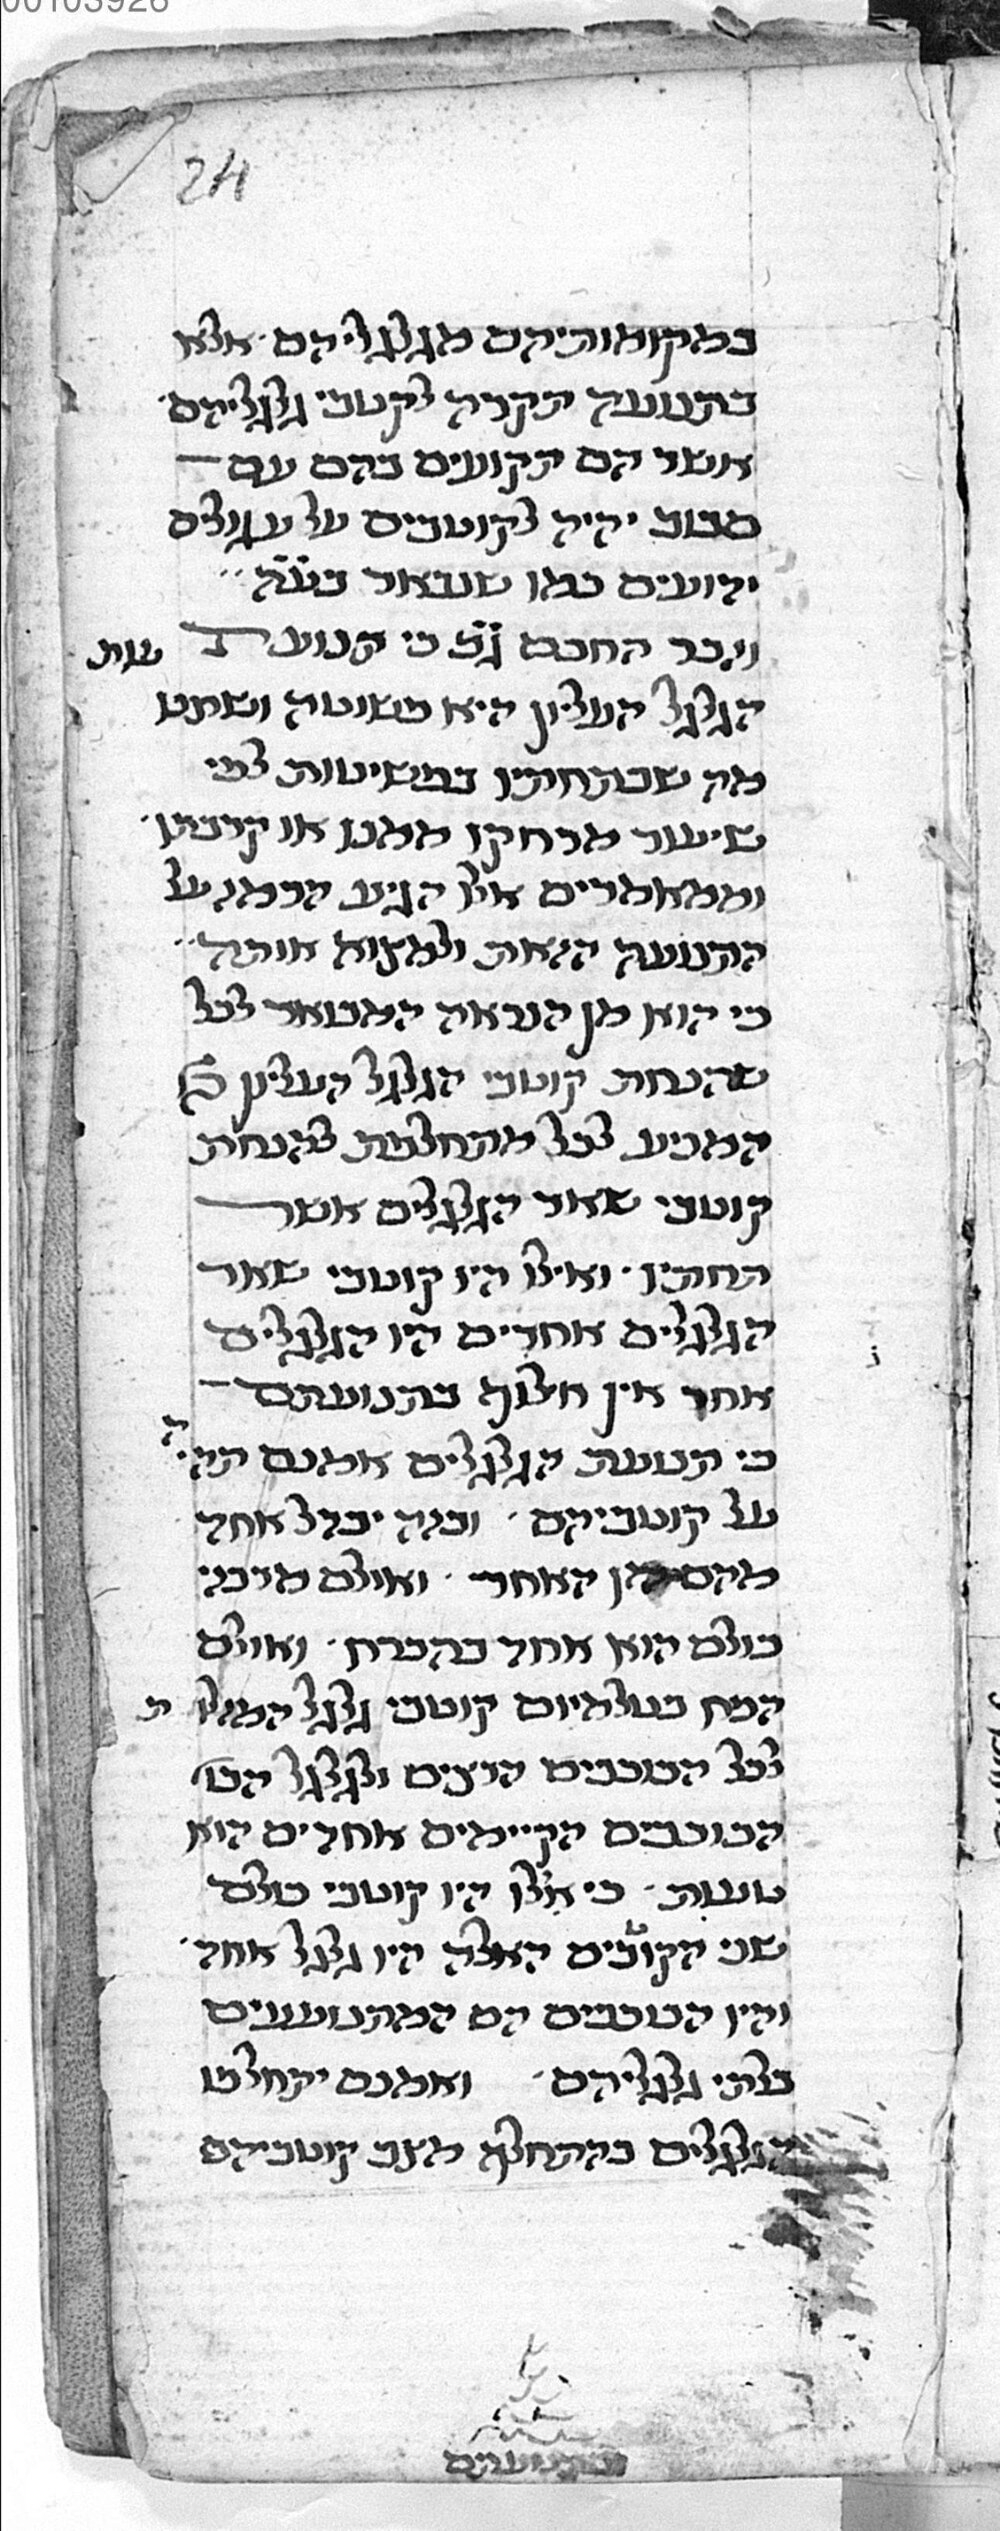 24
במקומותיהם מגלגליהם · אלא
בתנועה תקרה לקטבי גלגליהם ·
אשר הם תקועים בהם עם
סבוב יהיה לקוטבים על עגולים
ידועים כמו שנבאר בע״ה
וזכר החכם ג״כ כי תנועת
הגלגל העליון היא פשוטה ושתט
מה שבתחתיו בפשיטות לפי
שיעור מרחקו ממנו או קרבתו ·
וממאמרים אלו הגיע הרמז על
התנועה הזאת ולמצוא אותה
כי הוא מן הנראה המבואר לכל
שהנחת קוטבי הגלגל העליון
המניע לכל מתחלפת להנחת
קוטבי שאר הגלגלים אשר
תחתיו · ואילו היו קוטבי שאר
הגלגלים אחדים היו הגלגלים
אחד אין חילוף בתנועתם
כי תנועת הגלגלים אמנם תהיה
על קוטביהם · ובזה יבדל אחד
מהם מן האחר · ואולם מרכזי
כולם הוא אחד בהכרח · ואולם
הנח בטלמיוס קוטבי גלגל המזלות
לכל הכוכבים הרצים ולגלגל
הכוכבים הקיימים אחדים הוא
טעות · כי אילו היו קוטבי כולם
שני הקוטבים האלה היו גלגל אחד ·
והיו הכוכבים הם המתנועעים
בלתי גלגליהם · ואמנם יתחלפו
הגלגלים בהתחלף מצב קוטביהם